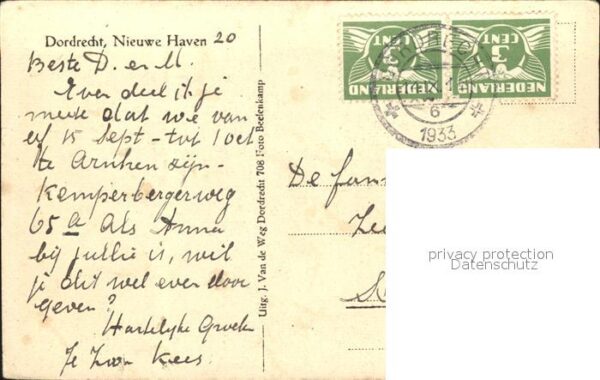 Dordrecht, Nieuwe Haven 20
Beste D. en M.
Even deel ik je
mede dat we van
af 15 Sept - tot 1 Oct
te Arnhem zijn
Kemperbergerweg
65a Als Anna
bij jullie is, wil
je dit wel even door
geven?
Hartelijke Groeten
Je Zoon Kees.
Uitg. J. Van de Weg Dordrecht 708 Foto Beelenkamp
CENT 3
NEDERLAND
CENT 3
NEDERLAND
6
1933
De fam
privacy protection
Datenschutz